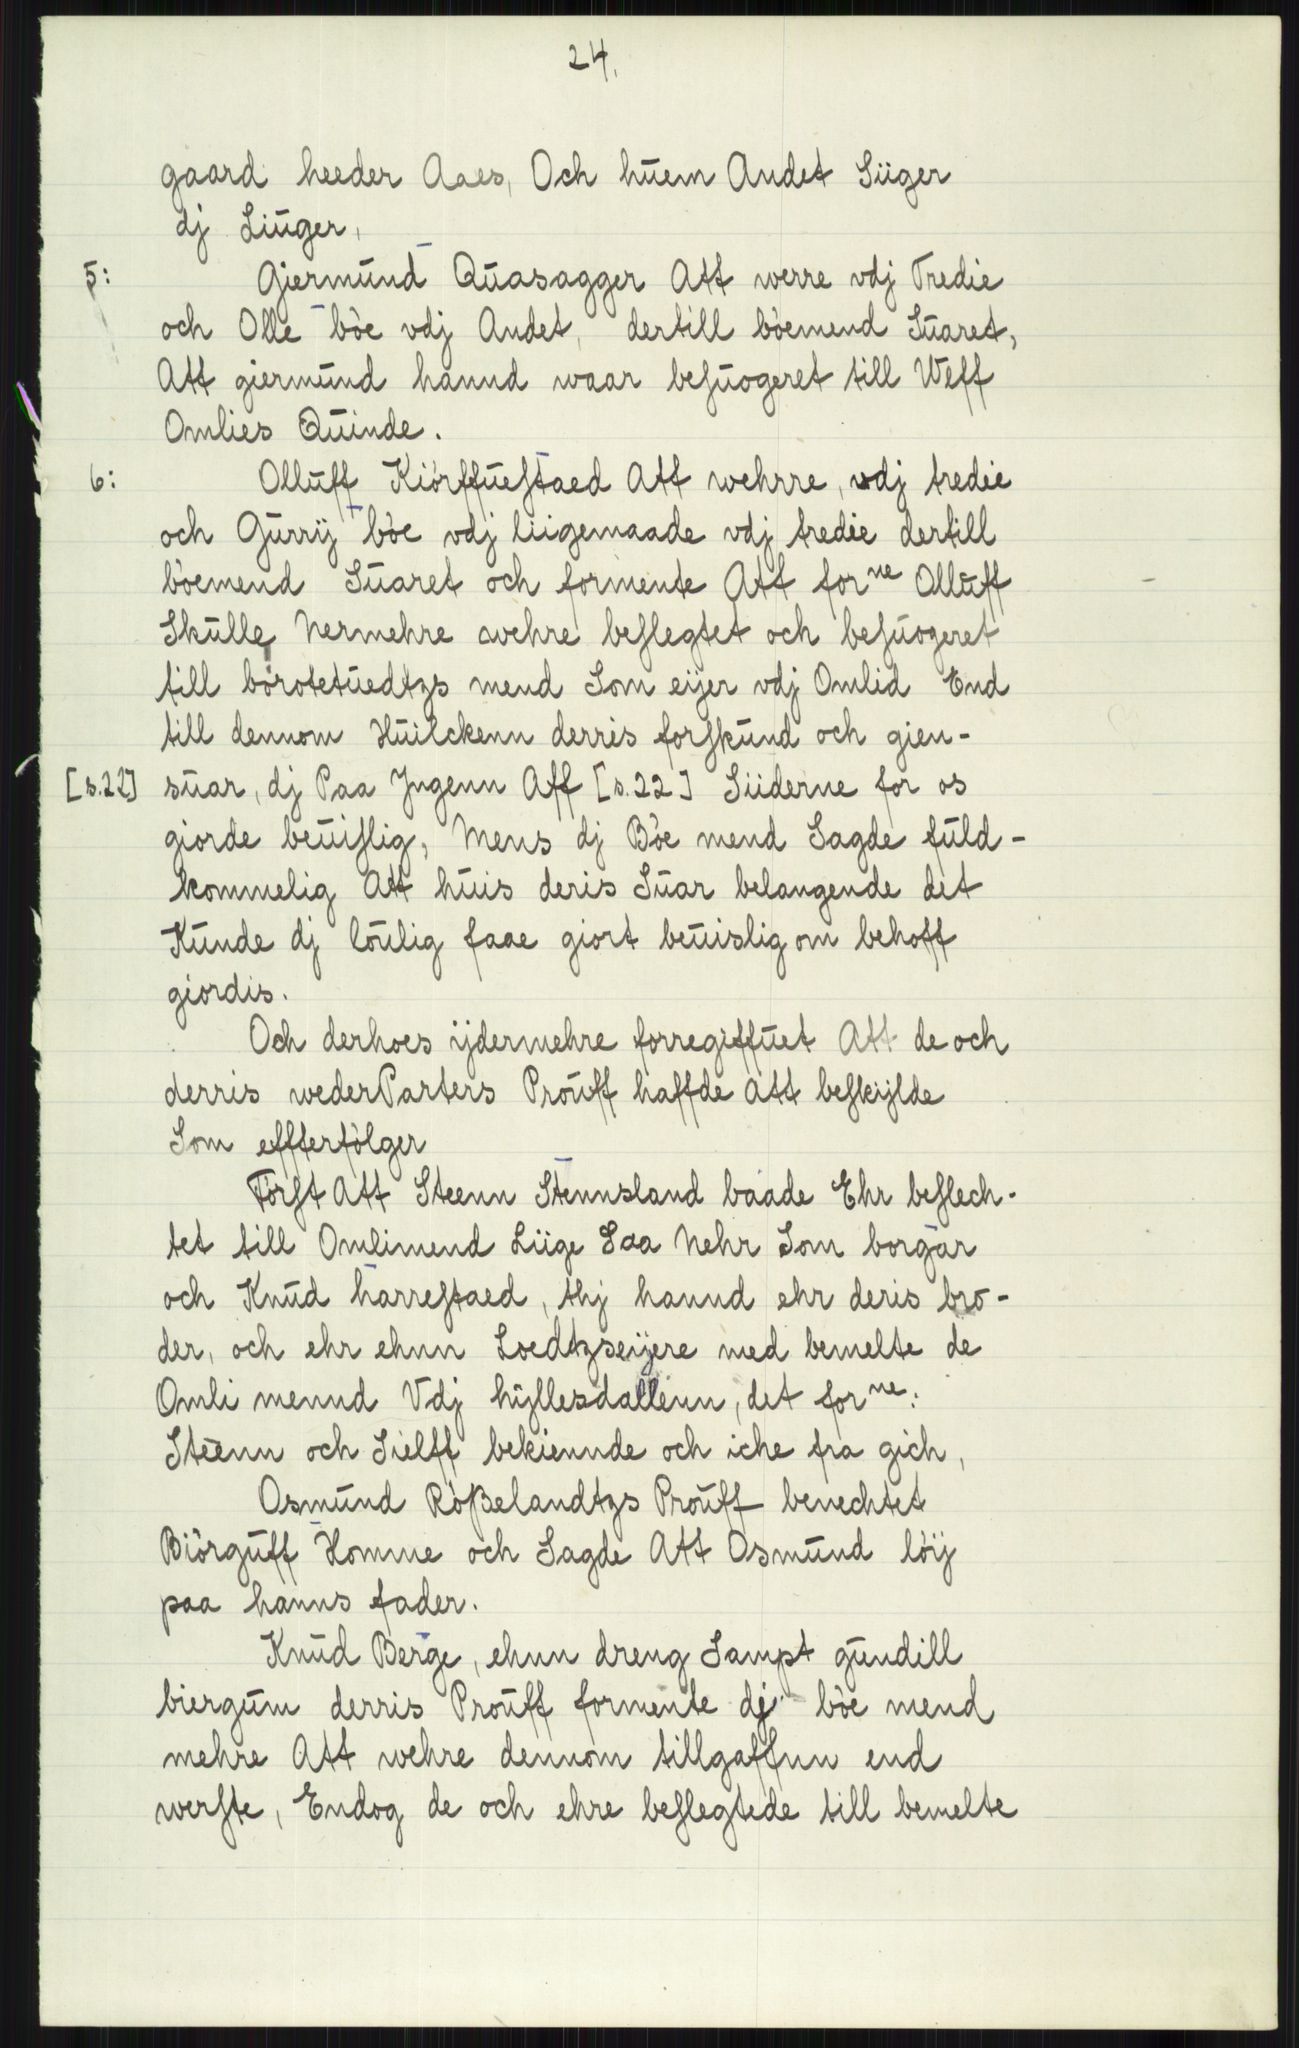 24.
gaard heeder Aaes, Och huem Andet Siiger
dj Liuger,
5: Gjermund Quasagger Att werre vdj Tredie
och Olle bòe vdj Andet, dertill bòemend Suaret,
Att giermund hannd waar besuogeret till Weff
Omlies Quinde.
6: Olluff Kiórffuestaed Att wehrre, vdj tredie
och Gurrij bòe vdj liigemaade vdj tredie dertill
bòemend Suaret och formente Att forne Olluff
Skulle Nermehre wehre beslegtet och besuogeret
till bórotetuedtzs mend Som eijer vdj Omlid End
till dennom Huilckenn derris forskund och gien-
[s.22] suar, dj Paa Jngenn Aff [s.22] Siiderne for os
giorde beuislig, Mens dj Bòe mend Sagde fuld-
kommelig Att huis deris Suar belangende det
Kunde dj loulig faae giort beuislig om behoff
giordis.
Och derhoes ijdermehre forregiffuet Att de och
derris wederParters Prouff haffde Att beskijlde
Som effterfòlger
Fórst Att Steenn Stennsland baade Ehr beslech-
tet till Omlimend Liige Saa Nehr Som borgar
och Knud harrestaed, thj hannd ehr deris bro-
der, och ehr ehnn Loedtzseijere med bemelte de
Omli mennd Vdj hyllesdallenn, det forne:
Steenn och Sielff bekiennde och iche fra gich,
Osmund Róßelandtzs Prouff benechtet
Biórguff Homme och Sagde Att Osmund lóij
paa hanns fader.
Knud Berge, ehnn dreng Sampt gundill
biergum derris Prouff formente dj bòe mend
mehre Att wehre dennom tillgaffnn end
werste, Endog de och ehre beslegtede till bemelte